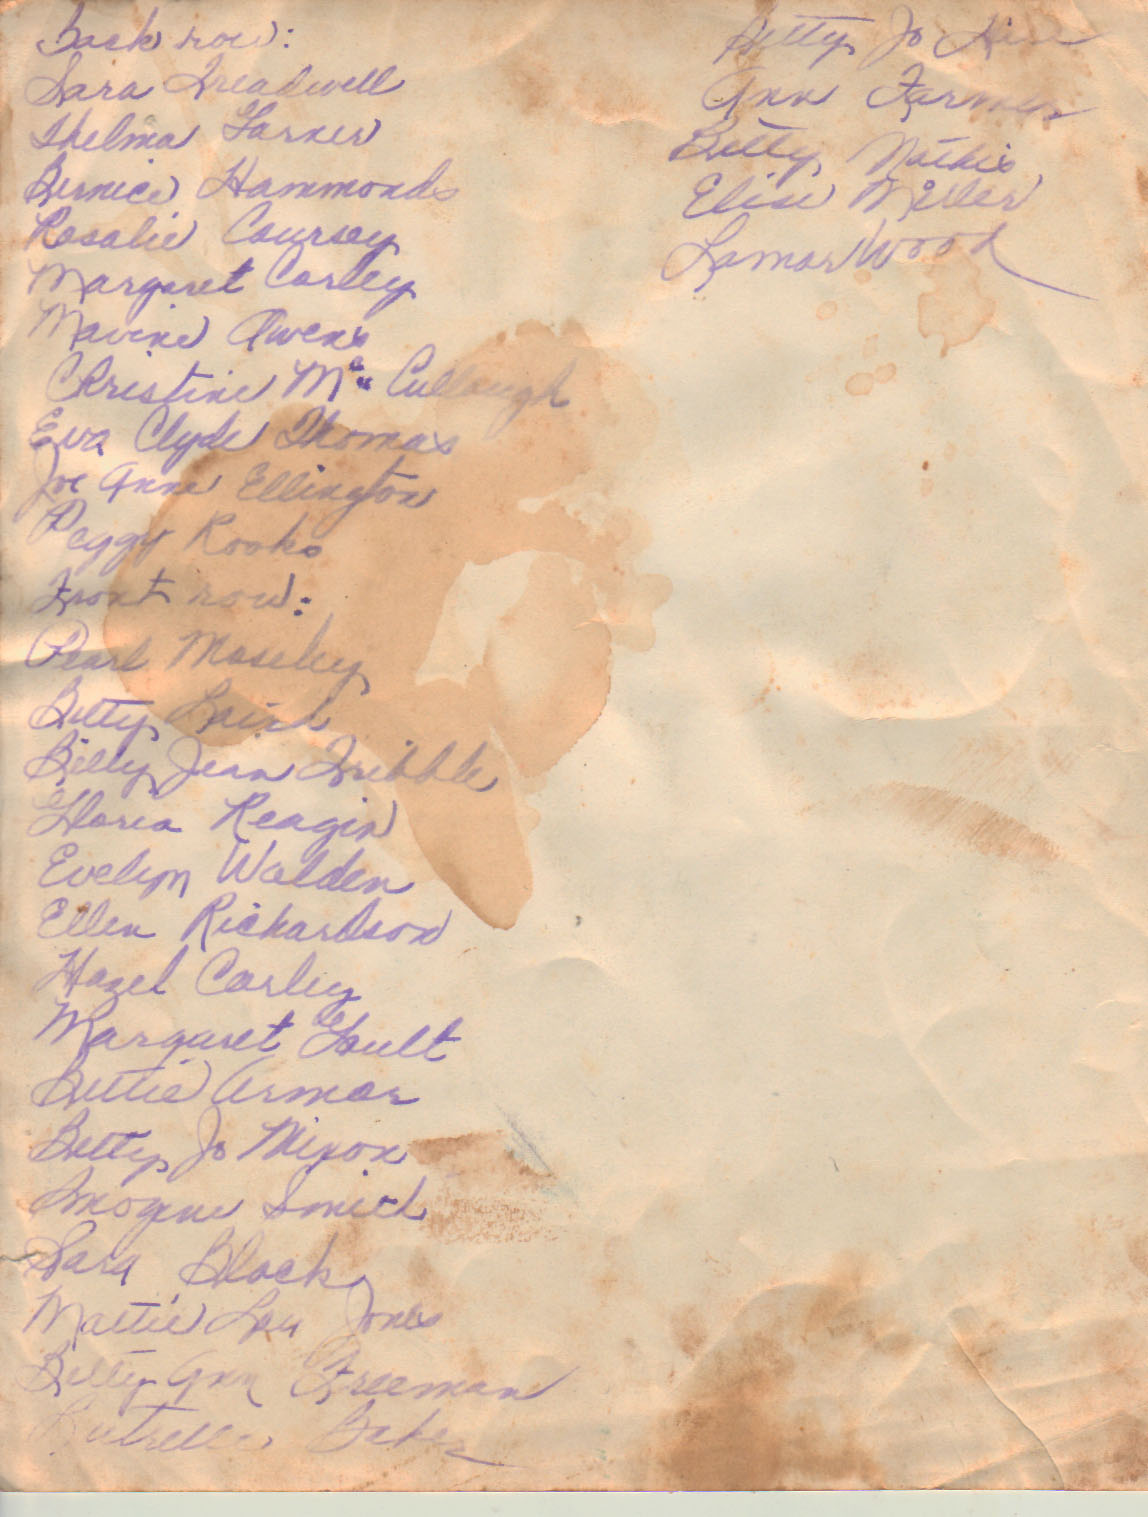 Back row:
Sara Treadwell
Thelma Garner
Bernice Hammonds
Rosalie Coursey
Margaret Corley
Mavine Owens
Christine Mc Cullough
Eva Clyde Thomas
Joe Anne Ellington
Peggy Rooks
Front row:
Pearl Moseley
Betty Laird
Billy Jean Tribble
Gloria Reagin
Evelyn Walden
Ellen Richardson
Hazel Corley
Margaret Gault
Bettie Armor
Betty Jo Mixon
Imogene Smith
Sara Block
Mattie Lou Jones
Betty Ann Freeman
Baker
Betty Jo
Ann Farmer
Betty Mathis
Elise Miller
Lamar Wood